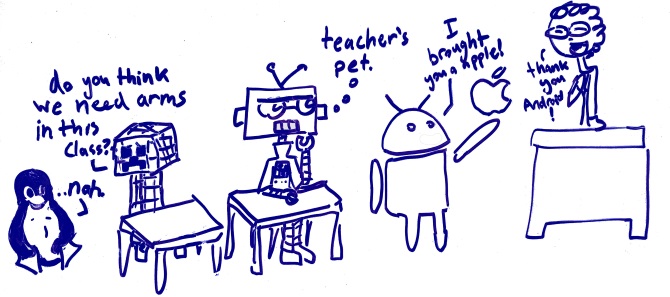 do you think
we need arms
in this
class?
..nah.
teacher's
pet.
I
brought
you a Apple!
thank
you
Android
!